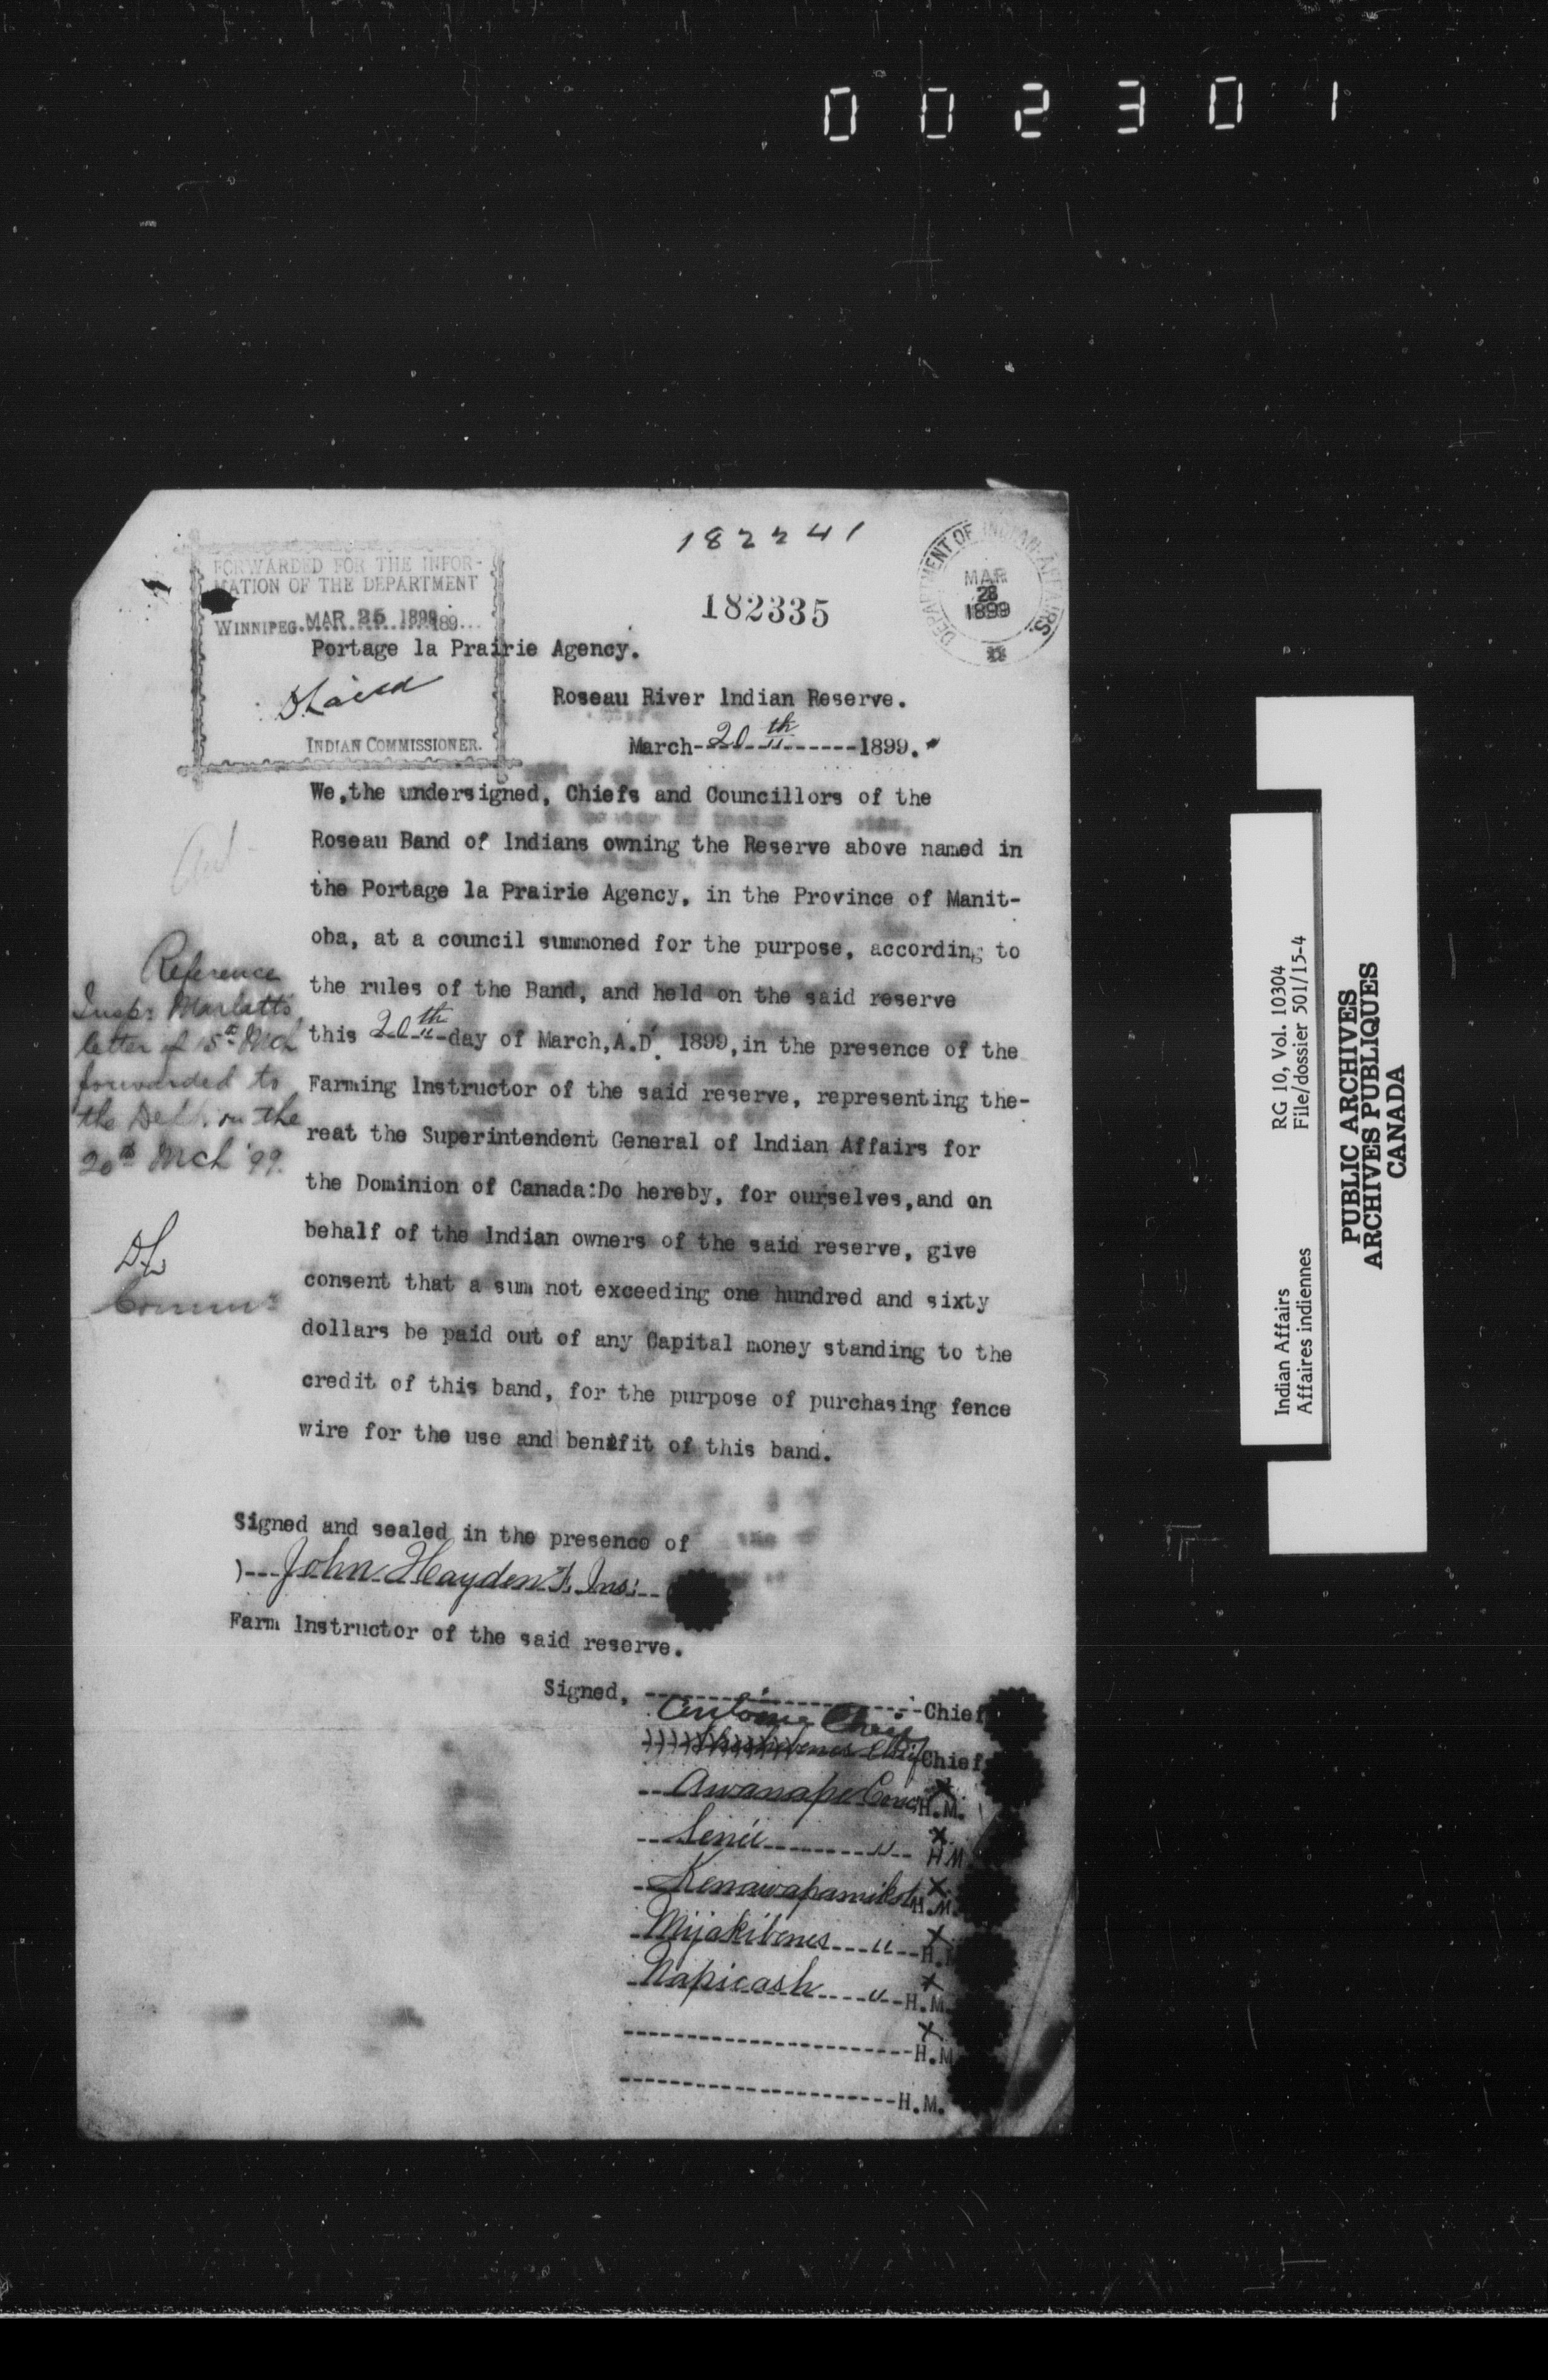 002301
182241
182335
DEPARTMENT OF INDIAN AFFAIRS
MAR
28
1899
FORWARDED FOR THE INFOR-
MATION OF THE DEPARTMENT
WINNIPEG. MAR 25 1899 189...
Portage la Prairie Agency.
DLaird
INDIAN COMMISSIONER.
Roseau River Indian Reserve.
March-20th------1899.
We,the undersigned, Chiefs and Councillors of the
Roseau Band of Indians owning the Reserve above named in
the Portage la Prairie Agency, in the Province of Manit-
oba, at a council summoned for the purpose, according to
the rules of the Band, and held on the said reserve
this 20th-day of March,A.D. 1899,in the presence of the
Farming Instructor of the said reserve, representing the-
reat the Superintendent General of Indian Affairs for
the Dominion of Canada:Do hereby, for ourselves,and on
behalf of the Indian owners of the said reserve, give
consent that a sum not exceeding one hundred and sixty
dollars be paid out of any Capital money standing to the
credit of this band, for the purpose of purchasing fence
wire for the use and benifit of this band.
Reference
Inspr Marlatts
letter of 15th Mch
forwarded to
the Dept. on the
20th Mch '99.
DL
Commr
Signed and sealed in the presence of
)---John Hayden F. Ins:--
Farm Instructor of the said reserve.
Signed, ---------------------Chief
Antoine Chief
Chief Chief
--Awanape Counc X H.M.
---Senie--------- " -- X H.M
--Kenawapamikok X H.M.
-Mijakibenes---"--X H.M
-Napicash----"--X H.M.
X
----------------------H.M
---------------------H.M.
RG 10, Vol. 10304
File/dossier 501/15-4
Indian Affairs
Affaires indiennes
PUBLIC ARCHIVES
ARCHIVES PUBLIQUES
CANADA